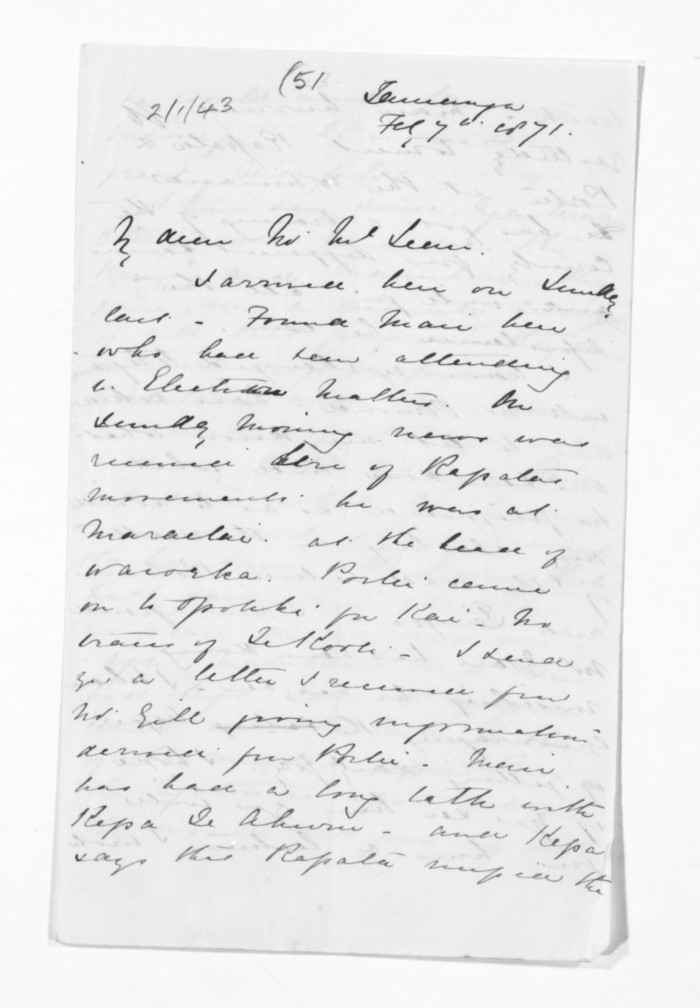 (51
2/1/43
Tauranga
Feb 7th 1871.
My dear Mr McLean.
I arrived here on Sunday
last - Found Mair here
who had been attending
to Election Matters. On
Sunday Morning news was
received here of Rapatas
movements he was at
Maraetai. at the head of
waioeka. Porter came
on to Opotiki for Kai - No
traces of Te Kooti - I send
you a letter I received from
Mr Gill giving information
derived from Porter - Mair
has had a long talk with
Kepa Te Ahuru - and Kepa
says that Rapata the